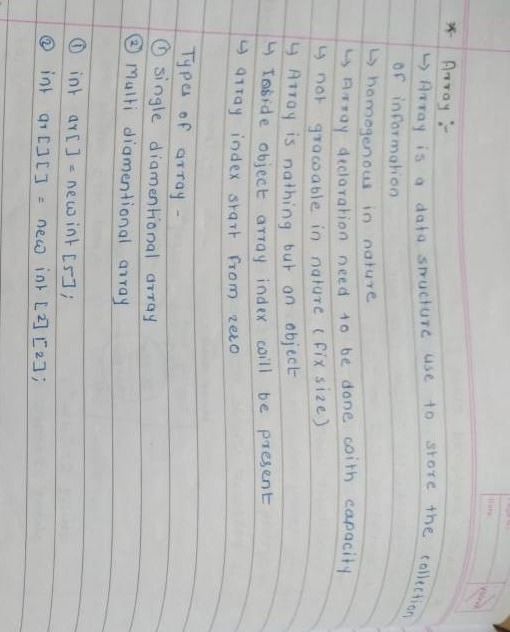 * Array :-
↳ Array is a data structure use to store the collection
of information
↳ homogenous in nature
↳ Array declaration need to be done with capacity
↳ not growable in nature (fix size)
↳ Array is nothing but an object
↳ Inside object array index will be present
↳ array index start from zero
Types of array -
① single diamentional array
② multi diamentional array
① int ar[] = new int [5];
② int ar[][] = new int [2][2];